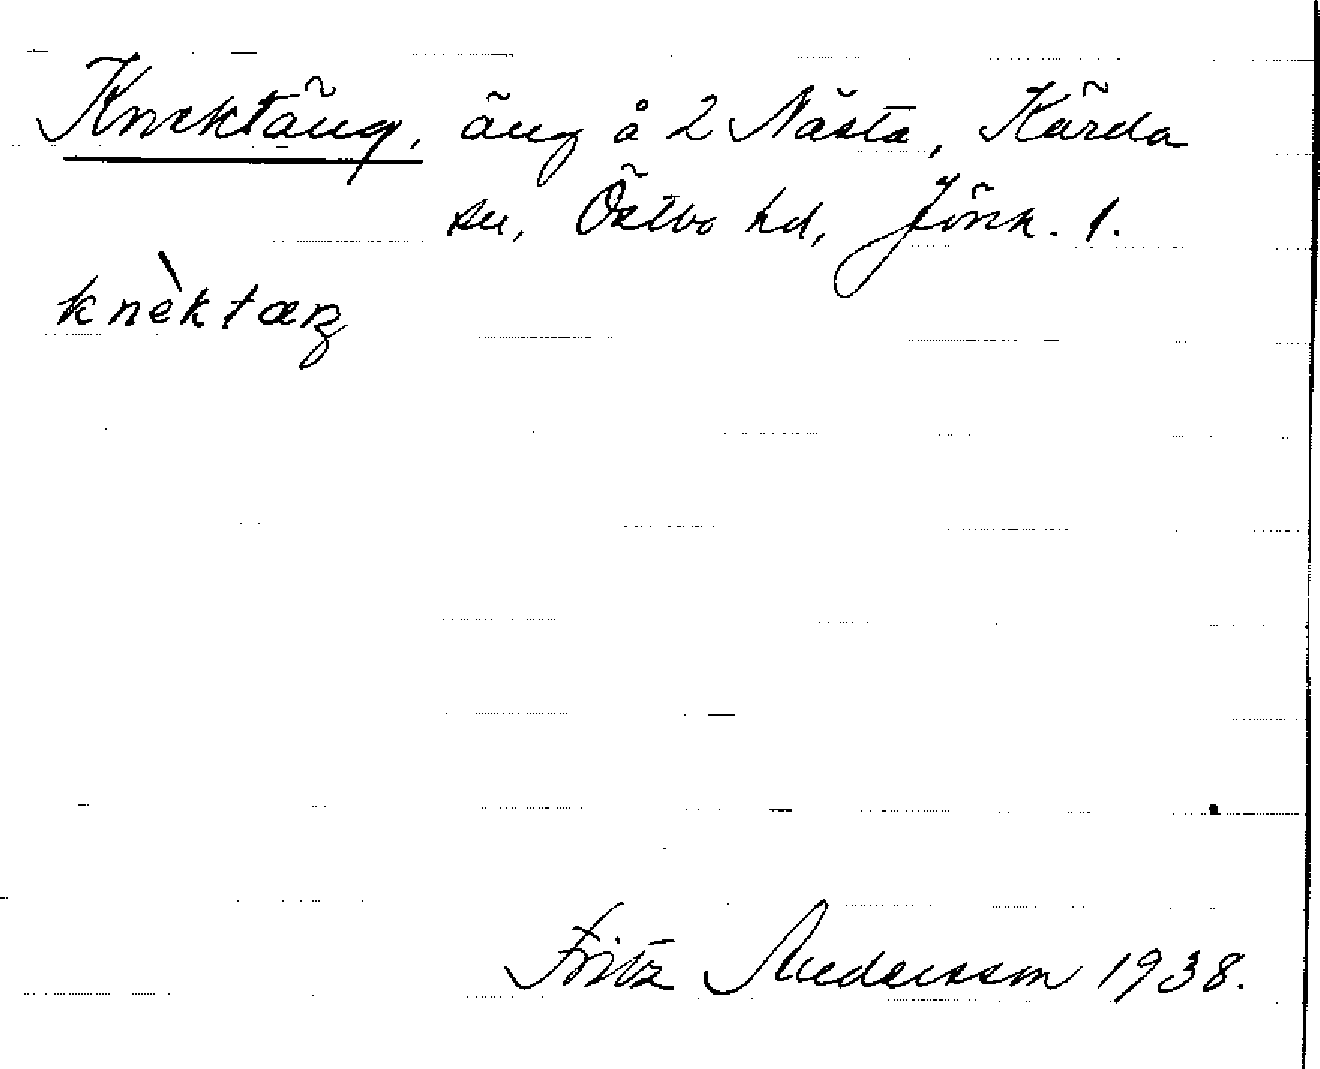 Knektäng, äng å 2 Nästa, Kärda
sn, Östbo hd, Jönk. l.
knèktæŋ
Fritz Andersson 1938.